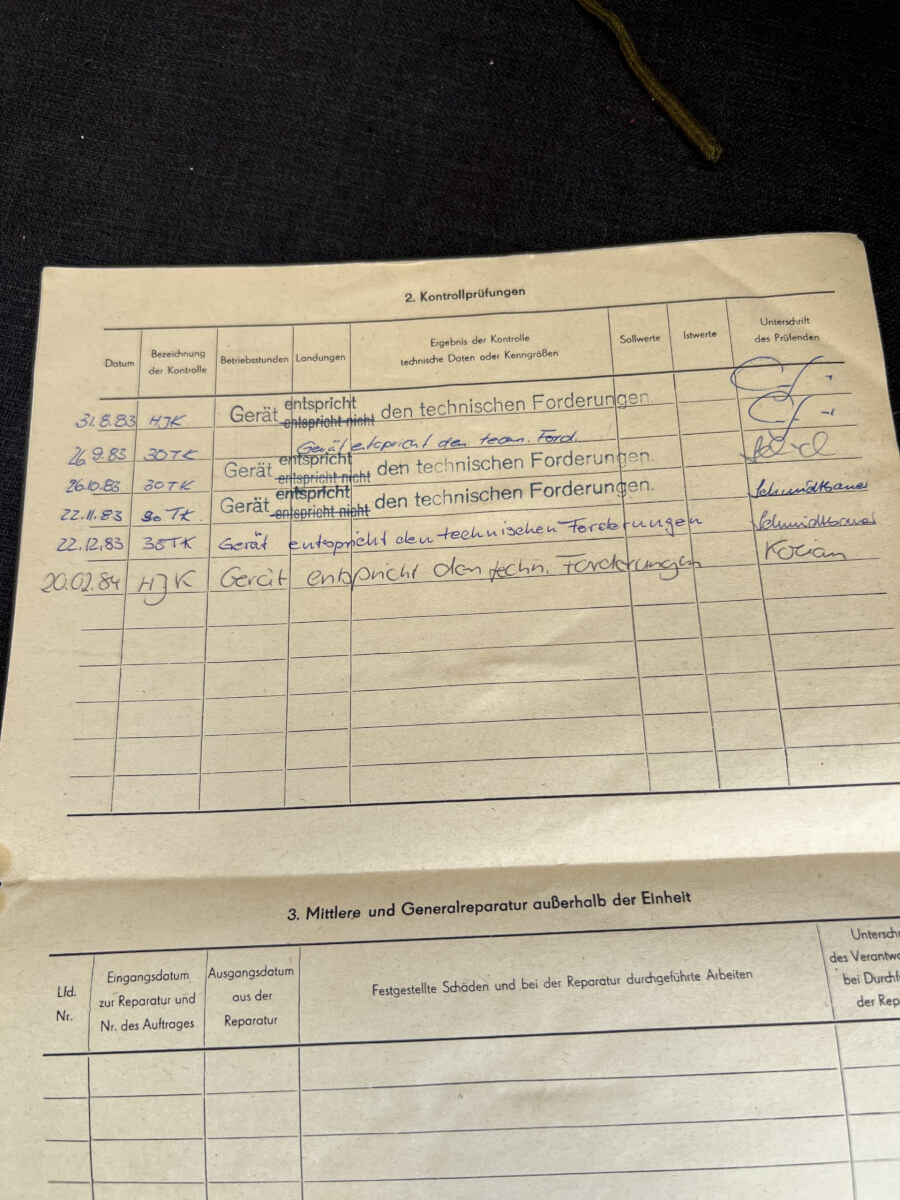 2. Kontrollprüfungen
Datum Bezeichnung der Kontrolle Betriebsstunden Landungen Ergebnis der Kontrolle technische Daten oder Kenngrößen Sollwerte Istwerte Unterschrift des Prüfenden
31.8.83 HJK Gerät entspricht entspricht nicht den technischen Forderungen.
26.9.83 30TK Gerät etspricht den techn. Ford.
26.10.83 30TK Gerät entspricht entspricht nicht den technischen Forderungen.
22.11.83 30 TK Gerät entspricht entspricht nicht den technischen Forderungen. Schmidtbauer
22.12.83 30TK Gerät entspricht den technischen Forderungen Schmidtbauer
20.02.84 HJK Gerät entspricht den techn. Forderungen Kozian
3. Mittlere und Generalreparatur außerhalb der Einheit
Lfd. Nr. Eingangsdatum zur Reparatur und Nr. des Auftrages Ausgangsdatum aus der Reparatur Festgestellte Schäden und bei der Reparatur durchgeführte Arbeiten Unterschr des Verantw bei Durchf der Rep